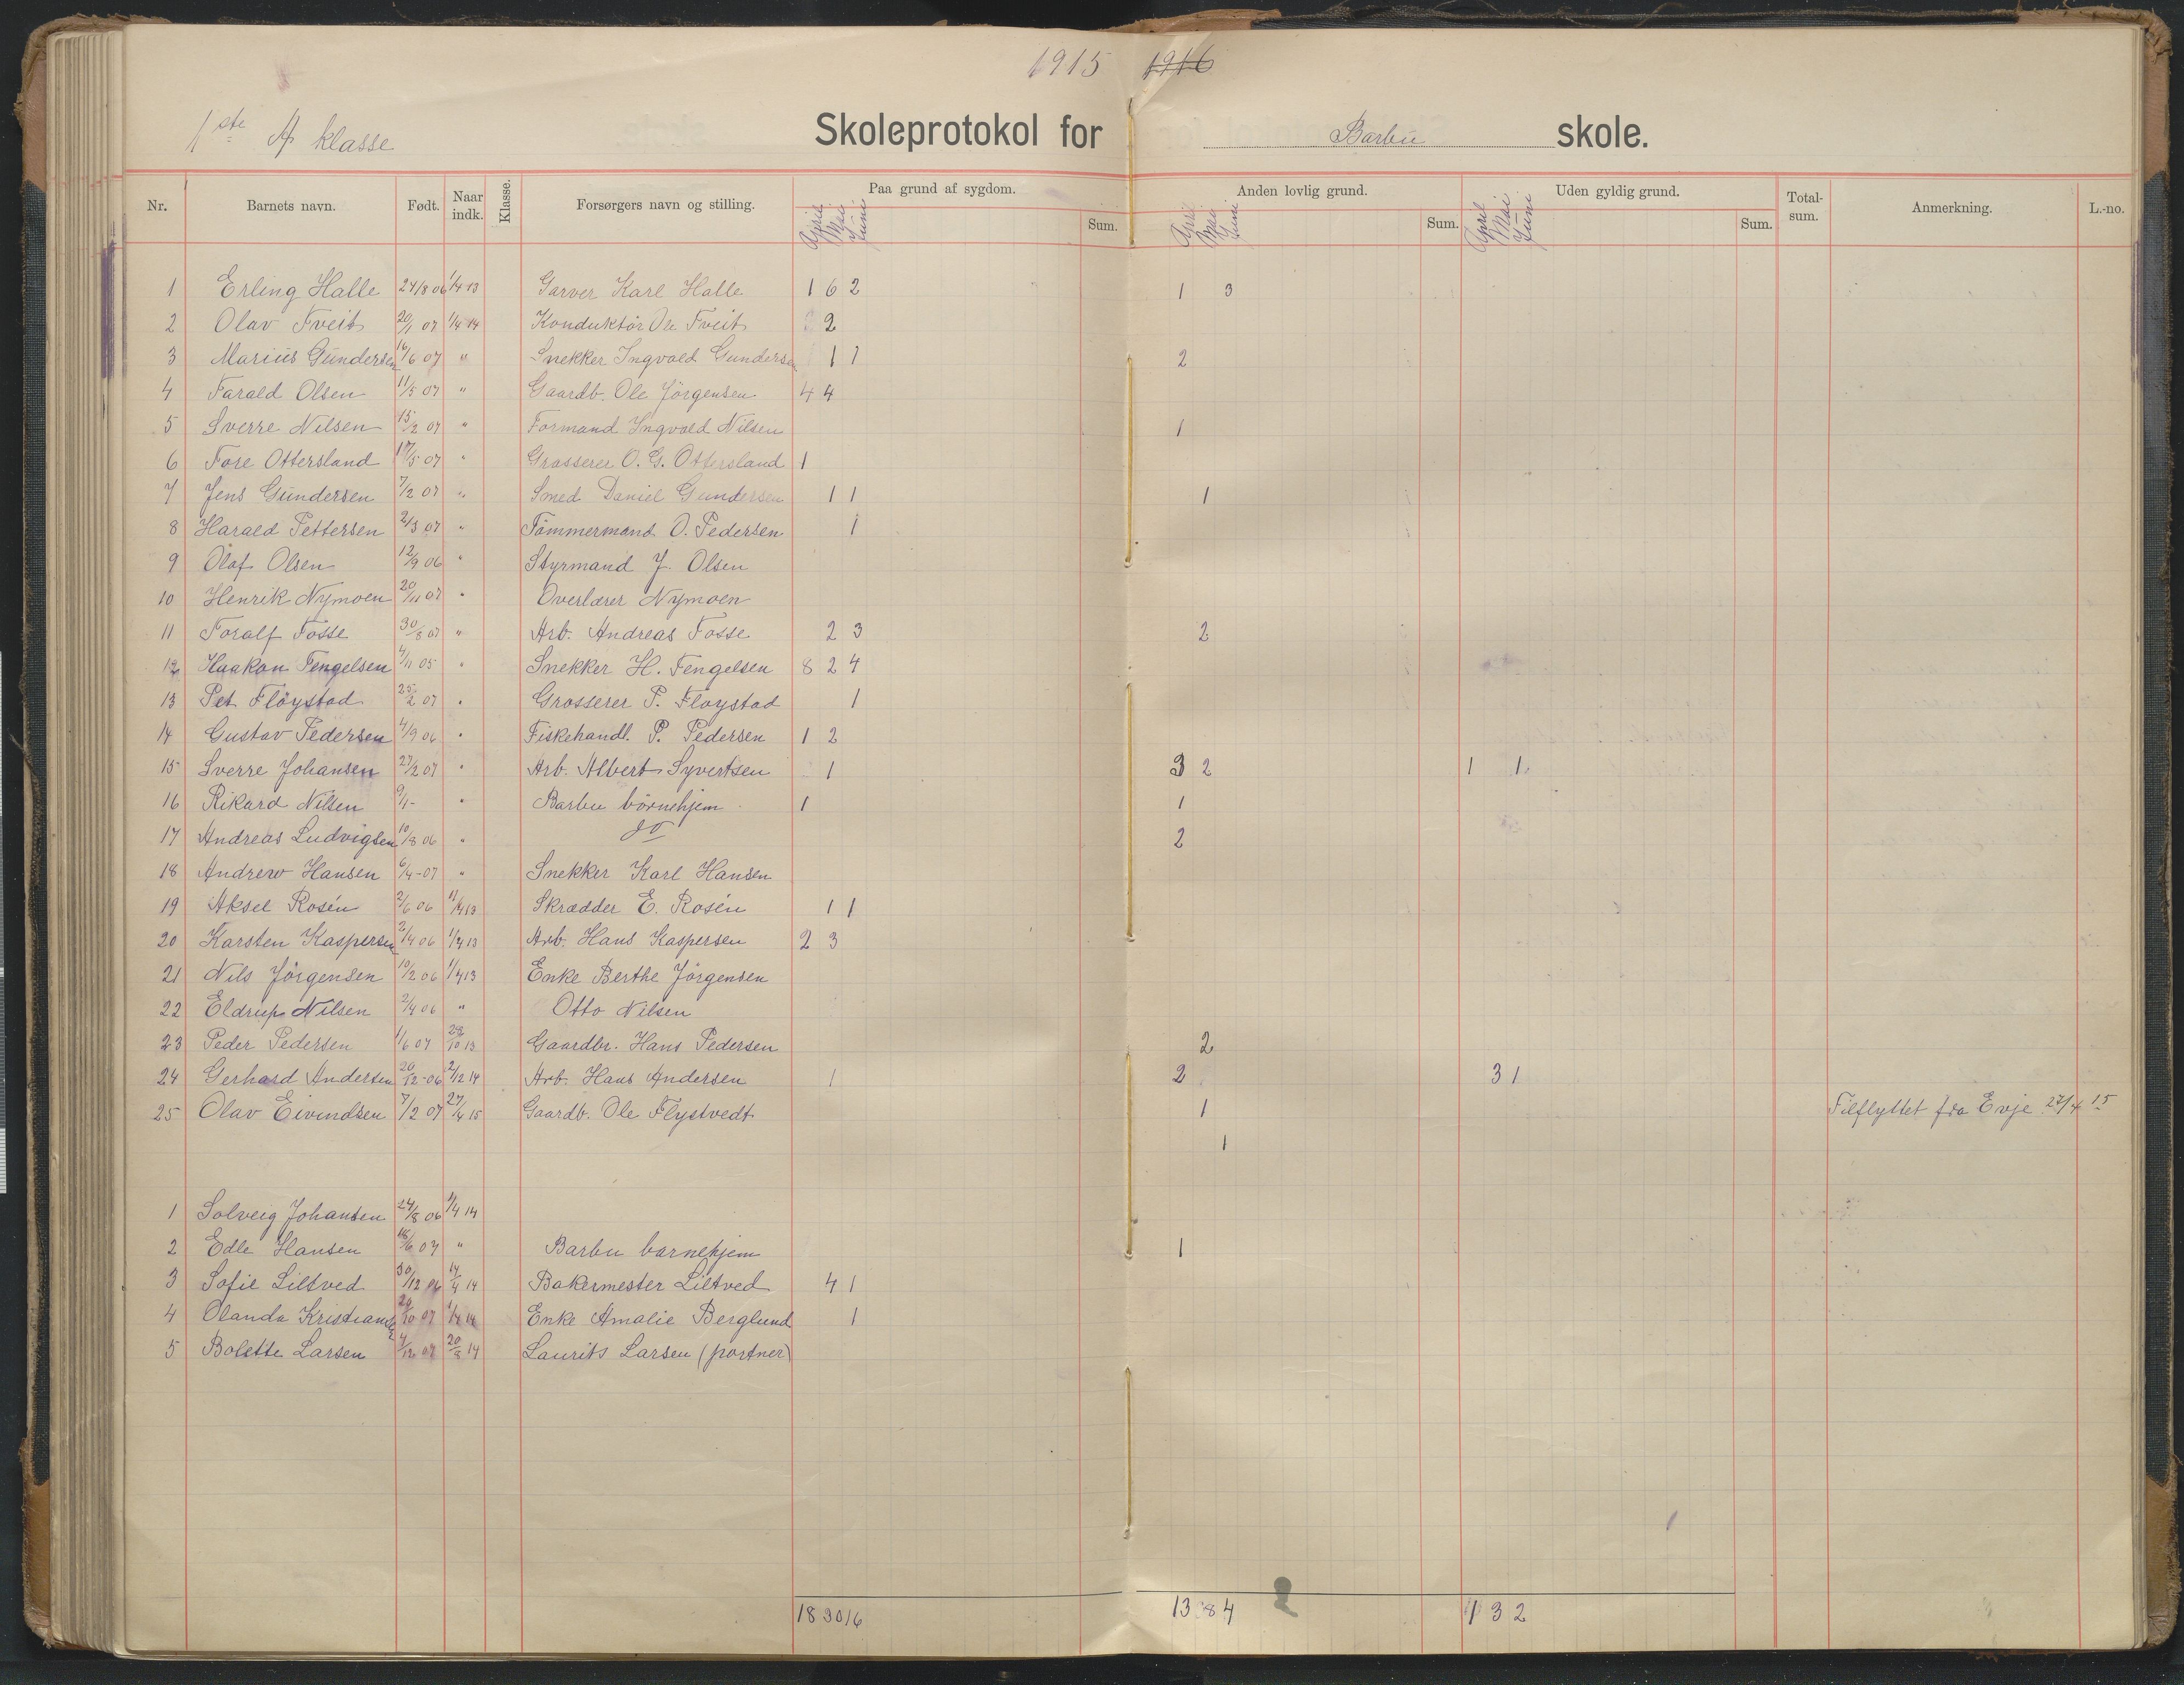 1915 1916
1ste A klasse Skoleprotokol for Barbu skole.
Nr. Barnets navn. Født. Naar indk. Klasse. Forsørgers navn og stilling. Paa grund af sygdom. Anden lovlig grund. Uden gyldig grund. Total-sum. Anmerkning. L.-no.
April Mai Juni Sum. April Mai Juni Sum. April Mai Juni Sum.
1 Erling Halle 24/8 06 1/4 13 Garver Karl Halle 1 6 2 1 3
2 Olav Tveit 20/1 07 1/4 14 Konduktör Ole Tveit 2
3 Marius Gundersen 16/6 07 " Snekker Ingvald Gundersen 1 1 2
4 Tarald Olsen 11/5 07 " Gaardb. Ole Jörgensen 4 4
5 Sverre Nilsen 15/2 07 " Formand Ingvald Nilsen 1
6 Tore Ottersland 17/5 07 " Grosserer O. G. Ottersland 1
7 Jens Gundersen 7/2 07 " Smed Daniel Gundersen 1 1 1
8 Harald Pettersen 2/3 07 " Tömmermand O. Pedersen 1
9 Olaf Olsen 12/9 06 " Styrmand J. Olsen
10 Henrik Nymoen 20/11 07 " Overlærer Nymoen
11 Toralf Fosse 30/8 07 " Arb. Andreas Fosse 2 3 2
12 Haakon Tengelsen 4/11 05 " Snekker H. Tengelsen 8 2 4
13 Pet Flöystad 25/2 07 " Grosserer P. Flöystad 1
14 Gustav Pedersen 4/9 06 " Fiskehandl. P. Pedersen 1 2
15 Sverre Johansen 27/2 07 " Arb. Albert Syvertsen 1 3 2 1 1
16 Rikard Nilsen 9/1- " Barbu börnehjem 1 1
17 Andreas Ludvigsen 10/8 06 " do 2
18 Andrew Hansen 6/4-07 " Snekker Karl Hansen
19 Aksel Rosén 2/6 06 1/4 13 Skrædder E. Rosén 1 1
20 Karsten Kaspersen 2/4 06 1/4 13 Arb. Hans Kaspersen 2 3
21 Nils Jörgensen 10/2 06 1/4 13 Enke Berthe Jörgensen
22 Eldrup Nilsen 2/4 06 " Otto Nilsen
23 Peder Pedersen 1/6 07 28/10 13 Gaardbr. Hans Pedersen 2
24 Gerhard Andersen 20/12-06 2/12 14 Arb. Hans Andersen 1 2 3 1
25 Olav Eivindsen 7/2 07 27/4 15 Gaardb. Ole Flystvedt 1 Tilflyttet fra Evje 27/4 15
1
1 Solveig Johansen 24/8 06 1/4 14
2 Edle Hansen 18/6 07 " Barbu barnehjem 1
3 Sofie Liltved 30/12 06 14/4 14 Bakermester Liltved 4 1
4 Olanda Kristianse 20/10 07 1/4 14 Enke Amalie Berglund 1
5 Bolette Larsen 4/12 07 20/8 14 Laurits Larsen (portner)
18 30 16 13 8 4 2 1 3 2